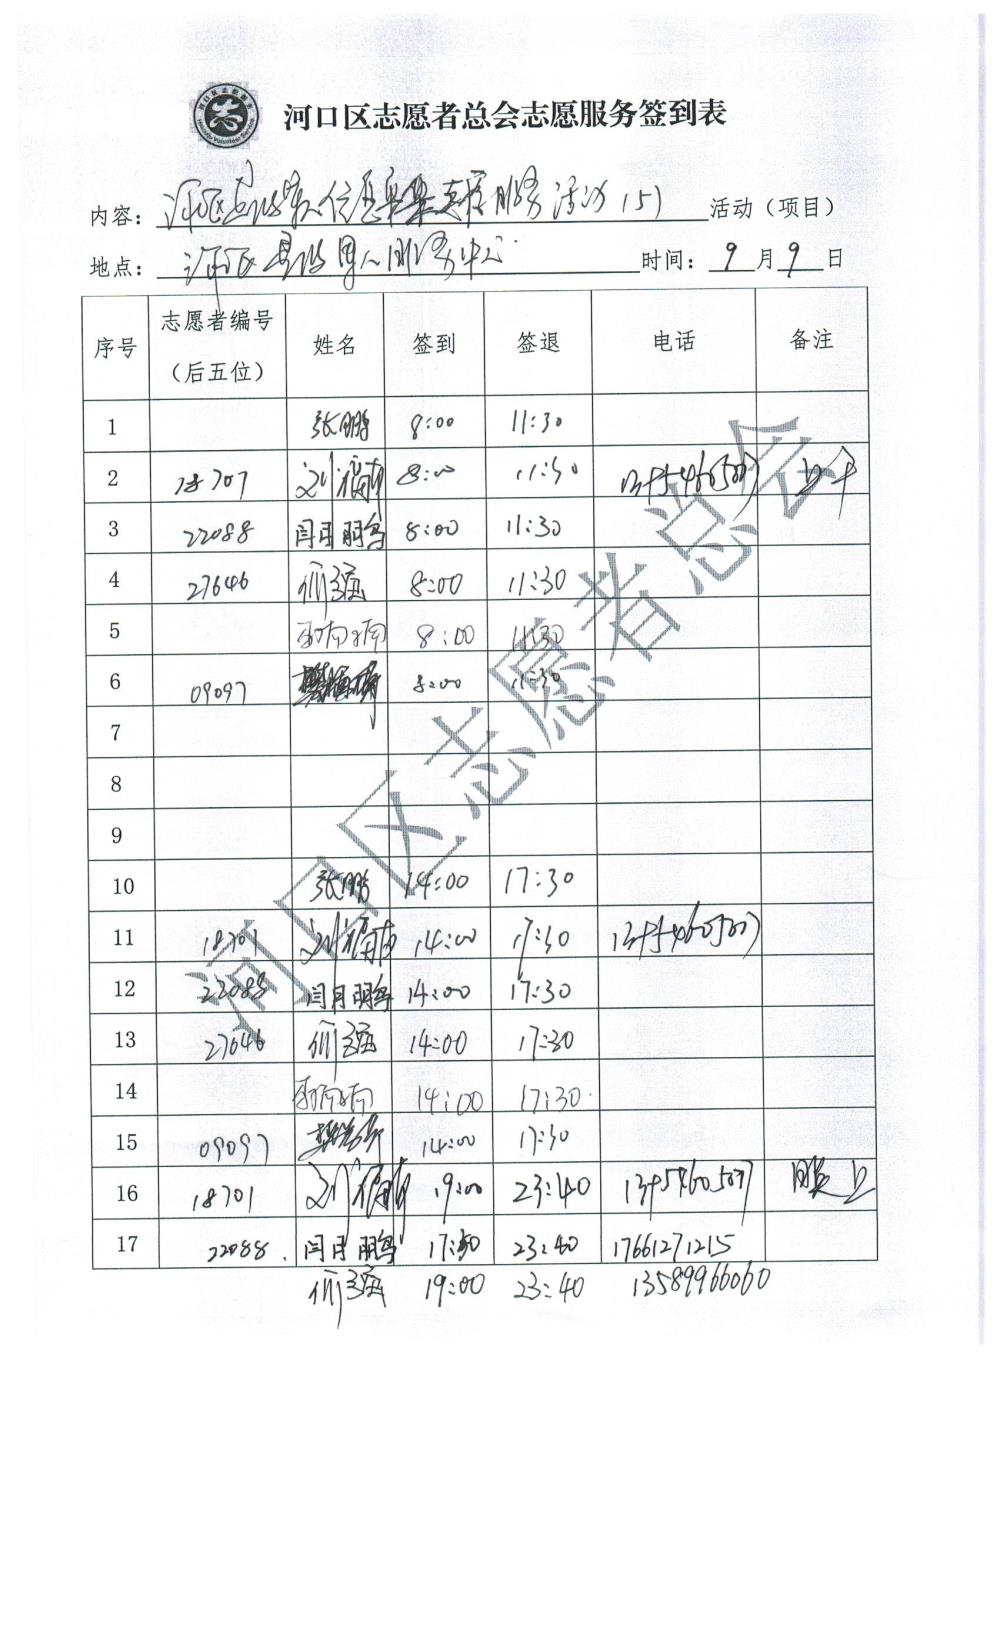 河口区志愿者总会志愿服务签到表
内容：河口区退役军人信息采集志愿服务活动（5） 活动（项目）
地点：河口区退役军人服务中心 时间：9月9日
序号 志愿者编号（后五位） 姓名 签到 签退 电话 备注
1 张鹏 8:00 11:30
2 18701 8:00 11:30 上午
3 22088 闫月鹏 8:00 11:30
4 27646 8:00 11:30
5 8:00 11:30
6 09097 8:00 11:30
7
8
9
10 张鹏 14:00 17:30
11 18701 14:00 17:30
12 22088 闫月鹏 14:00 17:30
13 27646 14:00 17:30
14 14:00 17:30
15 09097 14:00 17:30
16 18701 19:00 23:40 晚上
17 22088 闫月鹏 17:30 23:40 17661271215
19:00 23:40 13589966060
河口区志愿者总会